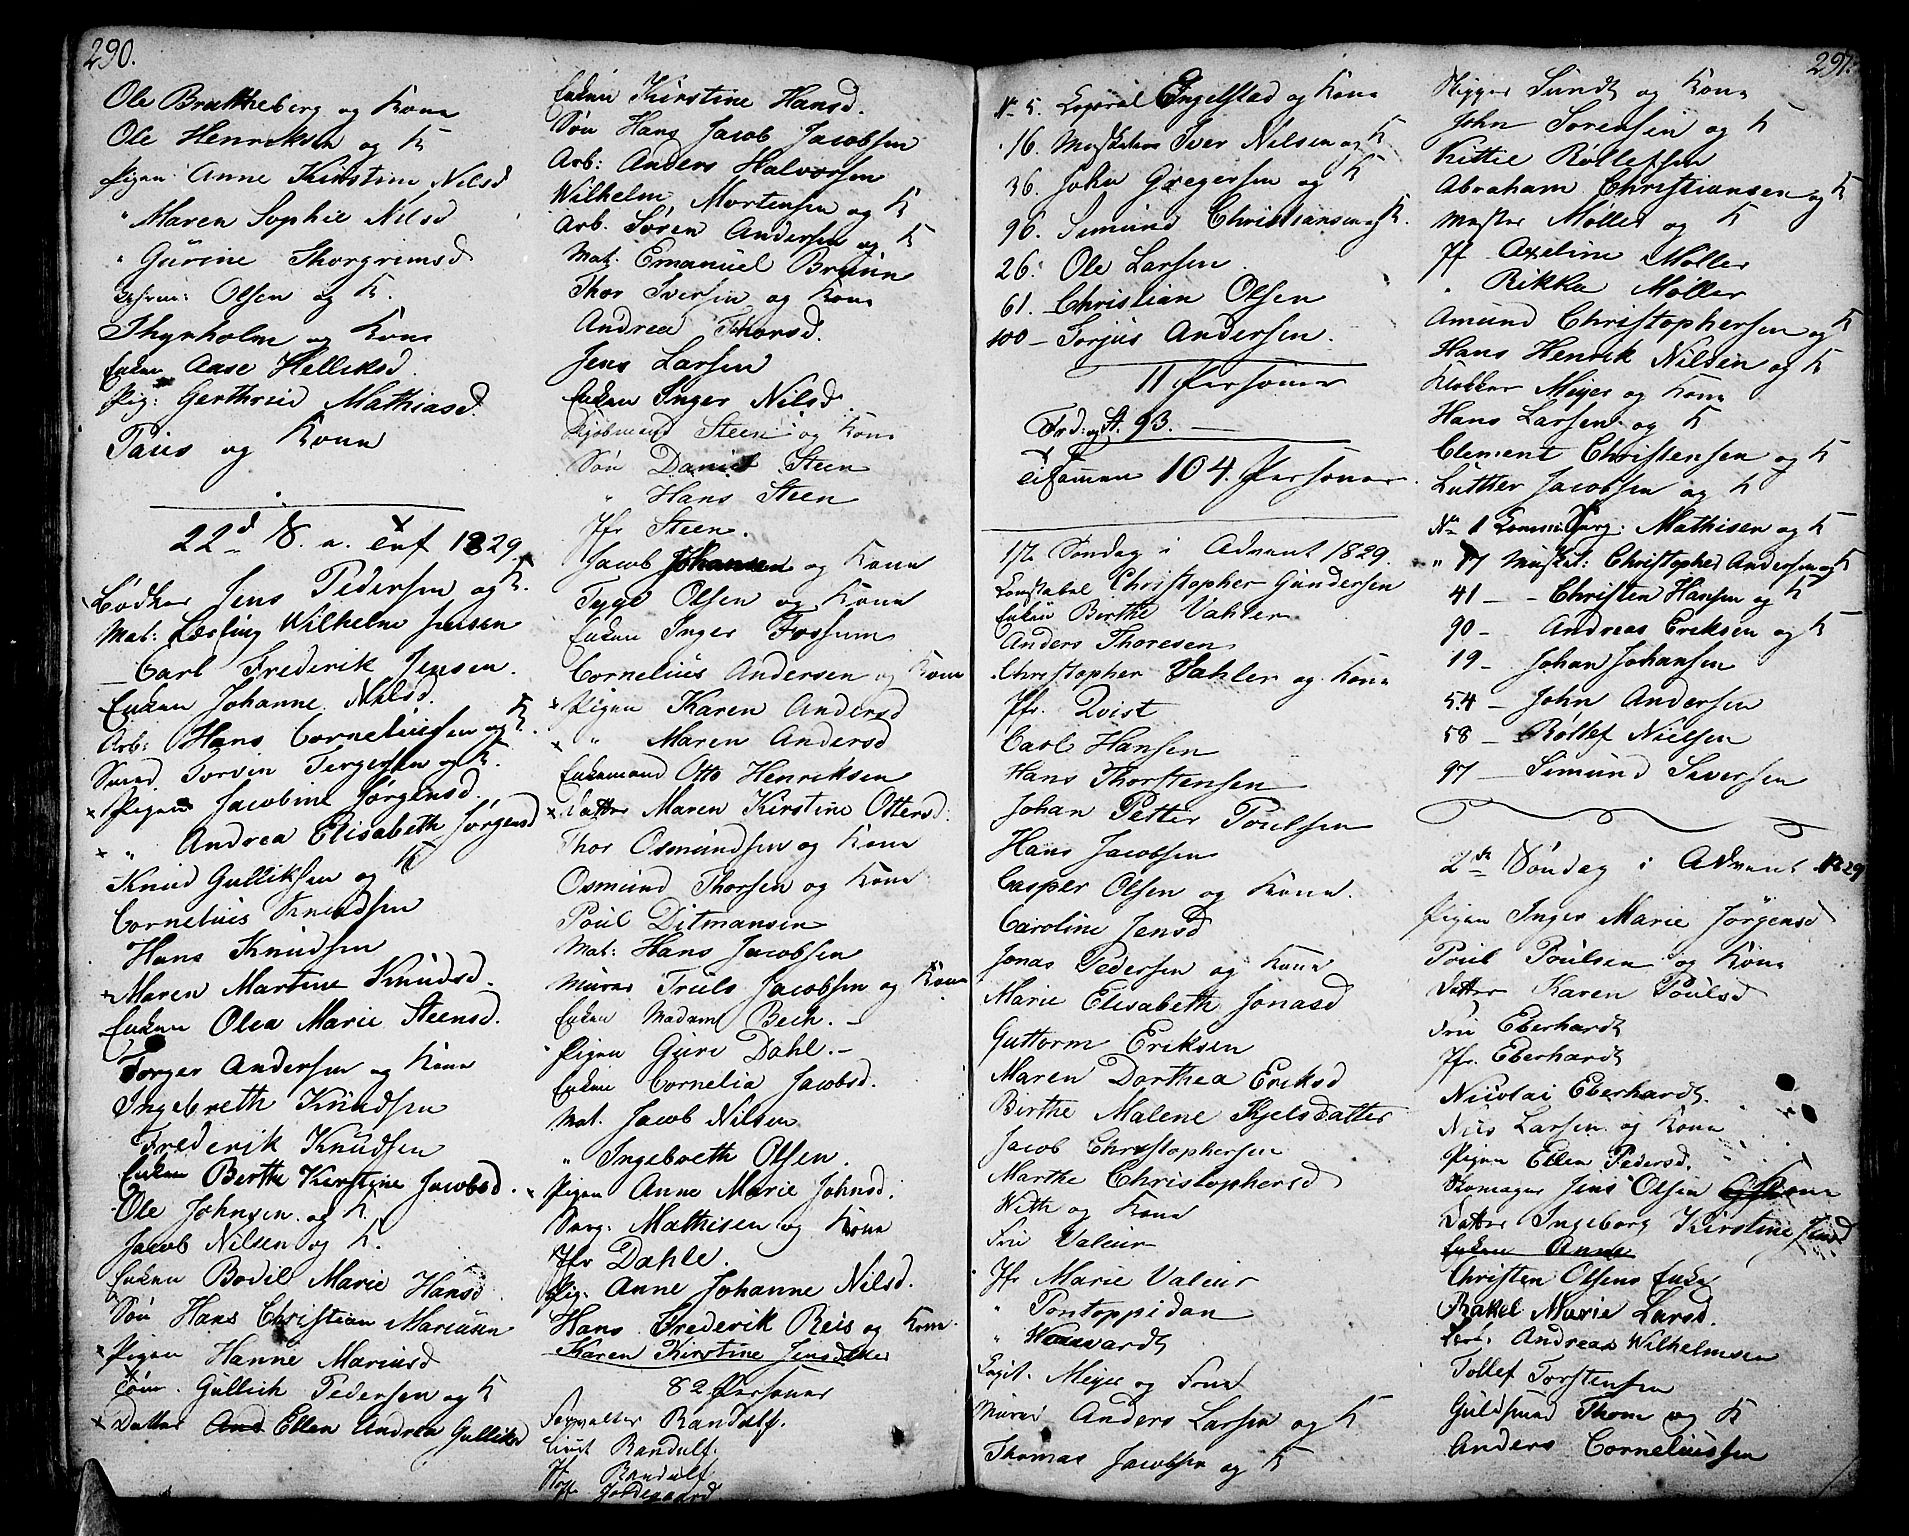 290.
Ole Brattheberg og Kone
Ole Henriksen og K
Pigen Anne Kirstine Nilsd
" Maren Sophie Nilsd
" Gurine Thorgrimsd
Olsen og K.
Thyrholm og Kone
Enken Aase Helliksd.
Pig: Gerthrud Mathiasd
Paus og Kone
22d S. a. Trf 1829.
Bødker Jens Pedersen og K.
Mat: Lærling Wilhelm Jensen
— Carl Frederik Jensen.
Enken Johanne Nilsd.
Arb: Hans Corneliussen og K.
Smed Torvin Tergersen og K.
× Pigen Jacobine Jørgensd.
× " Andrea Elisabeth Jørgensd
Knud Gulliksen og K
Cornelius Knudsen
Hans Knudsen
× Maren Martine Knudsd.
Enken Olea Marie Steensd.
Torger Andersen og Kone
Ingebreth Knudsen
Frederik Knudsen
Enken Berthe Kirstine Jacobsd.
Ole Johnsen og K.
Jacob Nilsen og K.
Enken Bodil Marie Hansd.
Søn Hans Christian Mariusen
× Pigen Hanne Mariusd
Tøm. Gullich Pedersen og K
× Datter And Ellen Andrea Gulliksd
Enken Kirstine Hansd.
Søn Hans Jacob Jacobsen
Arb: Anders Halvorsen
Wilhelm Mortensen og K
Arb. Søren Andersen og K
Mat: Emanuel Bruun
Thor Iversen og Kone
Andrea Thorsd.
Jens Larsen
Enken Inger Nilsd.
Kjøbmand Steen og Kone
Søn Daniel Steen
" Hans Steen
Jfr Steen.
Jacob Johansen og Kone
Tyge Olsen og Kone
Enken Inger Fossum
Cornelius Andersen og Kone
× Pigen Karen Andersd
× " Maren Andersd
Enkemand Otto Henriksen
× Datter Maren Kirstine Ottersd.
Thor Osmundsen og Kone
Osmund Thorsen og Kone
Poul Ditmansen
Mat: Hans Jacobsen
Murer Truls Jacobsen og Kone
Enken Madam Bech. —
Pigen Guri Dahl. —
Enken Cornelia Jacobsd.
Mat. Jacob Nilsen
" Ingebreth Olsen.
× Pigen Anne Marie Johnsd.
Serg. Mathisen og Kone
Jfr Dahle.
Pig. Anne Johanne Nilsd.
Hans Frederik Reis og Kone.
Karen Kirstine Jensdatter
82 Personer
Forvalter Randulf.
Lieut Randulf.
Jfr Randulf
Jfr Jordegaard
291.
No 5. Koporal Engelstad og Kone
16. Musketeer Iver Nilsen og K
36. John Gregersen og K
96. Simund Christiansen og K.
26. Ole Larsen
61. Christian Olsen
100 — Torjus Andersen.
11 Personer
Frd. og St. 93. —
Tilsammen 104. Personer.
1te Søndag i Advent 1829.
Konstabel Christopher Gundersen
Enken Berthe Vahler
Anders Thoresen
Christopher Vahler og Kone
Jfr. Qvist
Carl Hansen
Hans Thorstensen
Johan Petter Poulsen
Hans Jacobsen
Casper Olsen og Kone.
Caroline Jensd
Jonas Pedersen og Kone
Marie Elisabeth Jonasd
Guttorm Eriksen
Maren Dorthea Eriksd
Birthe Malene Kjelsdatter
Jacob Christophersen
Marthe Christophersd
With og Kone
Fru Valeur
Jfr Marie Valeur
" Pontoppidan
Capit. Meyer og Frue
Murer Anders Larsen og K
Thomas Jacobsen og K
Skipper Sundt og Kone
John Sørensen og K
Kittie Rollefsen
Abraham Christiansen og K
Møller og K
Jfr Axeline Møller
" Rikka Møller
Amund Christophersen og K
Hans Henrik Nilsen og K
Klokker Meyer og Kone
Hans Larsen og K
Clement Christensen og K
Lutther Jacobsen og K
No 1 Komm: Serg: Mathisen og K
" 17 Musket: Christopher Andersen og K
41 — - Christen Hansen og K
90 - Andreas Eriksen og K
19 — Johan Johansen
54 — John Andersen
58 — Rollef Nielsen
97 — Simund Siversen
2de Søndag i Advent 1829
Pigen Inger Marie Jörgensd
Poul Poulsen og Kone
Datter Karen Poulsd
Fru Eberhardt
Jfr. Eberhardt
Nicolai Eberhardt
Niis Larsen og Kone
Pigen Ellen Pedersd.
Skomager Jens Olsen og Kone
Datter Ingeborg Kirstine Jensd
Enken Anne
Christen Olsens Enke
Rakel Marie Larsd.
Andreas Wilhelmsen
Tollef Torstensen
Guldsmed Thom og K
Anders Corneliussen